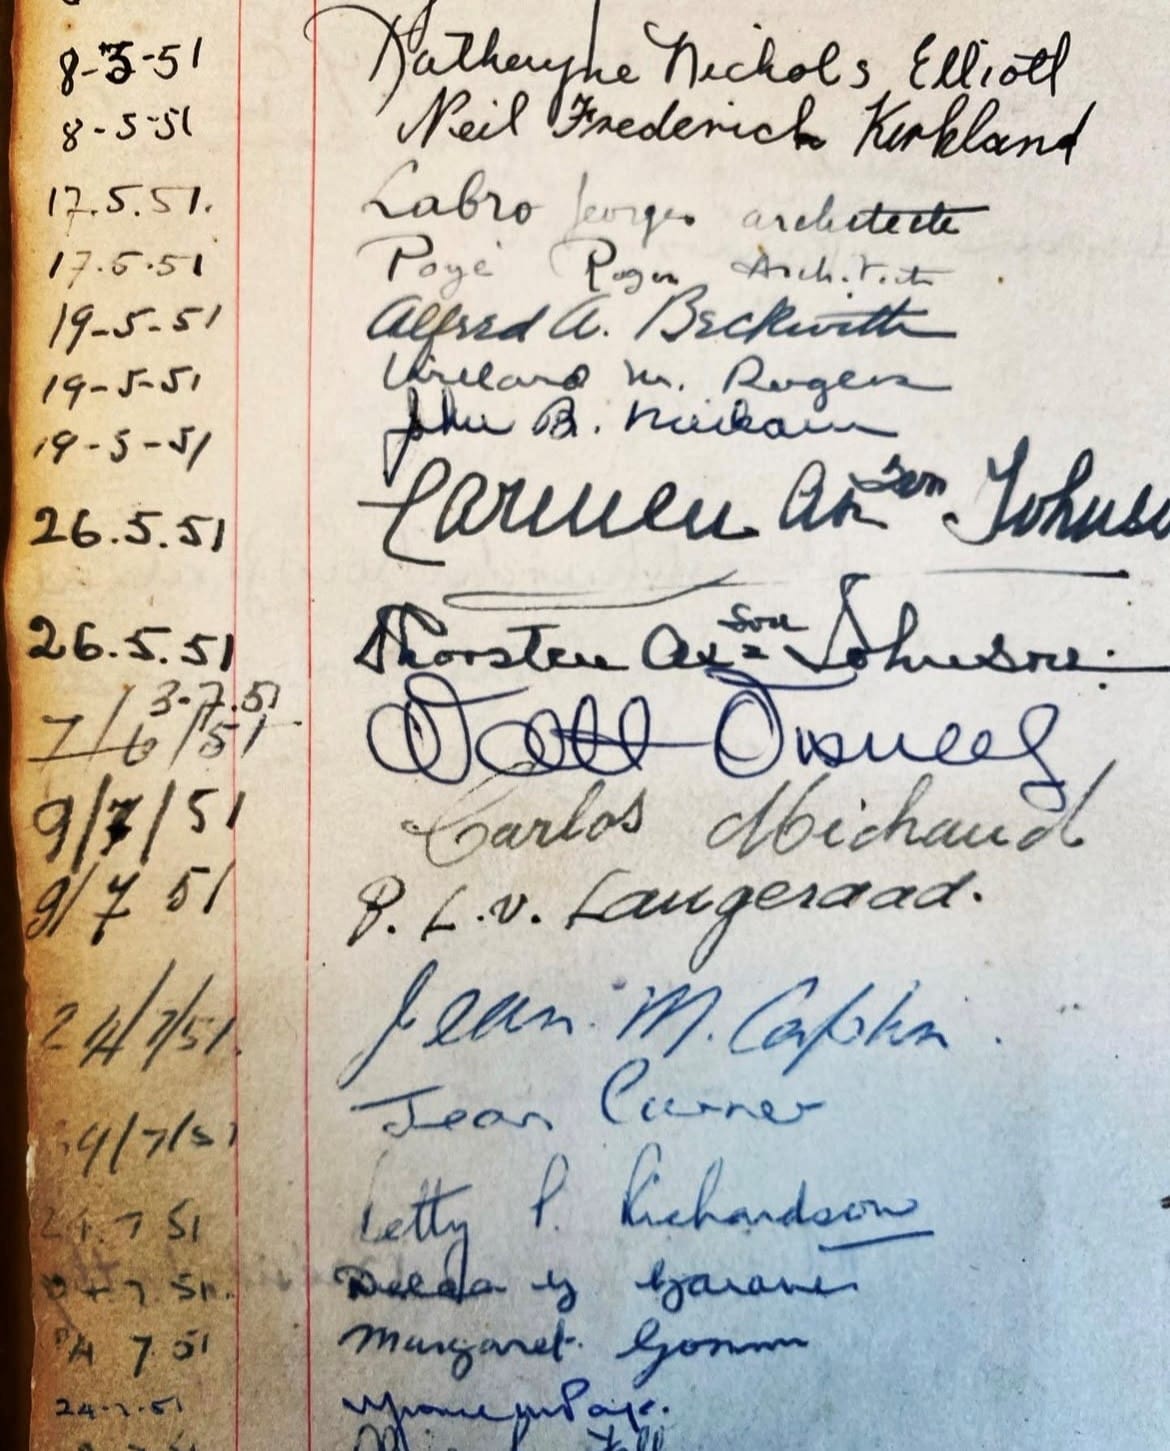 8-5-51 Katheryne Nichols Elliott
8-5-51 Neil Frederick Kirkland
17.5.51. Labro Georges architecte
17.5.51 Poyé Roger Architecte
19-5-51 Alfred A. Beckwith
19-5-51 Willard M. Rogers
19-5-51 John B.
26.5.51 Carmen Ax:son Johnso
26.5.51 Thorsten Ax:son Johnson.
3.7.51
7/6/51
9/7/51 Carlos Michaud
9/7 51 P. L. v. Langeraad.
24/7/51. Jean M.
24/7/51 Jean
24.7 51 Letty P. Richardson
24.7.51.
24 7 51 Margaret
24.7.51